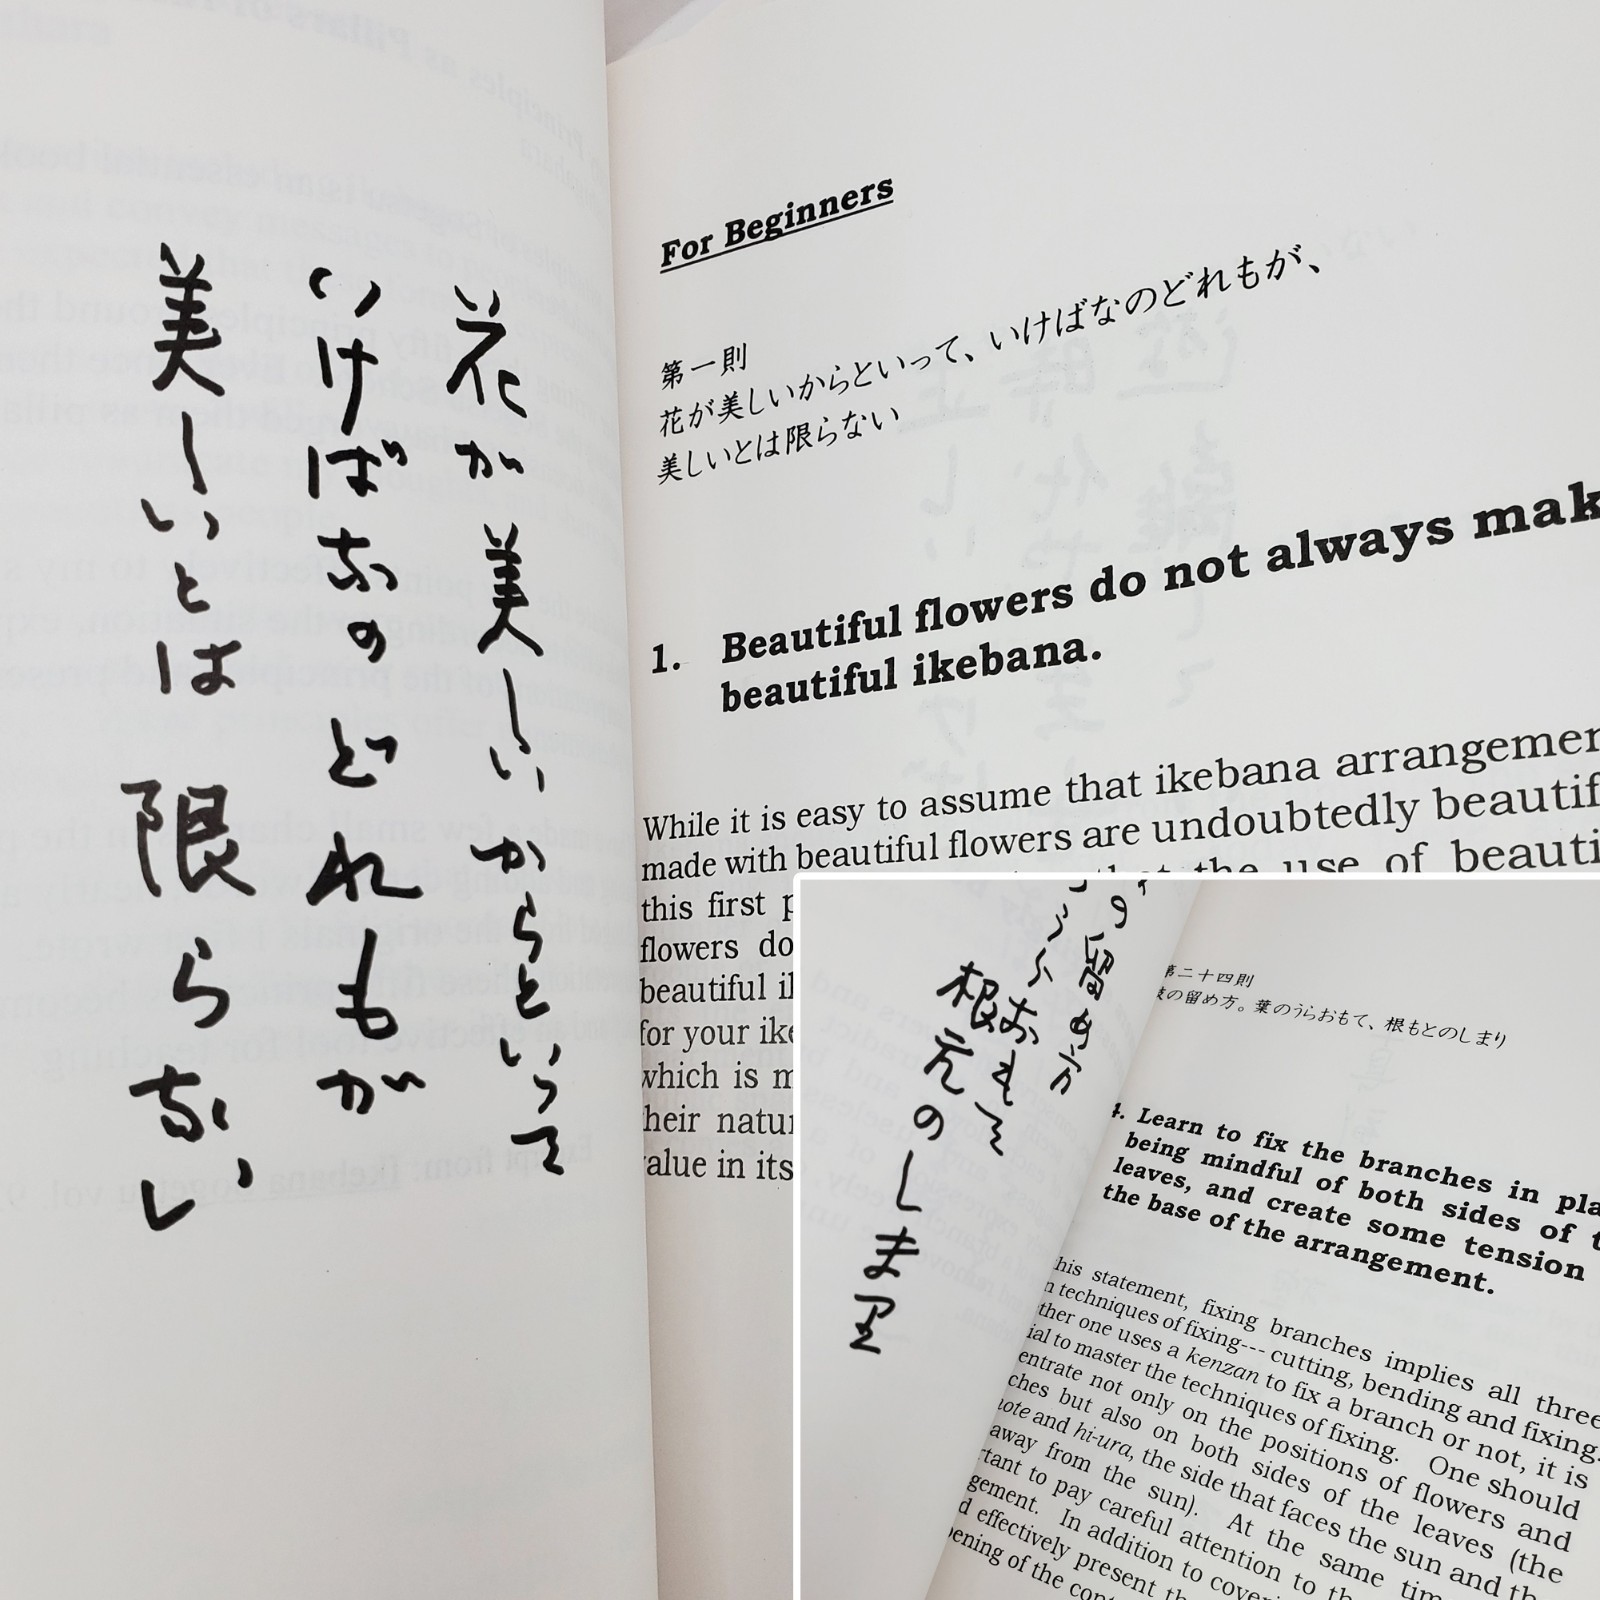 花が美しいからといって
いけばなのどれもが
美しいとは限らない
For Beginners
第一則
花が美しいからといって、いけばなのどれもが、
美しいとは限らない
1. Beautiful flowers do not always mak
beautiful ikebana.
While it is easy to assume that ikebana arrangemen
made with beautiful flowers are undoubtedly beautif
this first p that the use of beauti
flowers do
beautiful
for your ike
which is m
their natu
value in its
の留め方
うらおもて
根元のしまり
第二十四則
の留め方。葉のうらおもて、根もとのしまり
4. Learn to fix the branches in pla
being mindful of both sides of t
leaves, and create some tension
the base of the arrangement.
this statement, fixing branches implies all three
n techniques of fixing--- cutting, bending and fixing.
ther one uses a kenzan to fix a branch or not, it is
ial to master the techniques of fixing. One should
entrate not only on the positions of flowers and
ches but also on both sides of the leaves (the
mote and hi-ura, the side that faces the sun and th
away from the sun). At the same tim
rtant to pay careful attention to th
gement. In addition to coveri
d effectively present th
ening of the cont